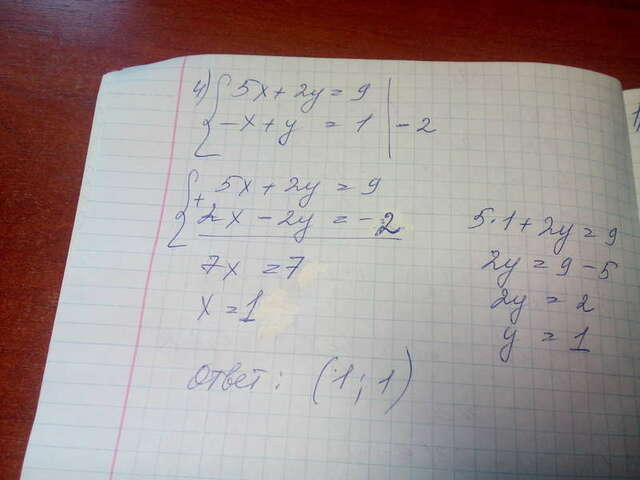 4) { 5x + 2y = 9
-x + y = 1 | -2
{ + 5x + 2y = 9
2x - 2y = -2
7x = 7
x = 1
5·1 + 2y = 9
2y = 9 - 5
2y = 2
y = 1
Ответ: (1; 1)